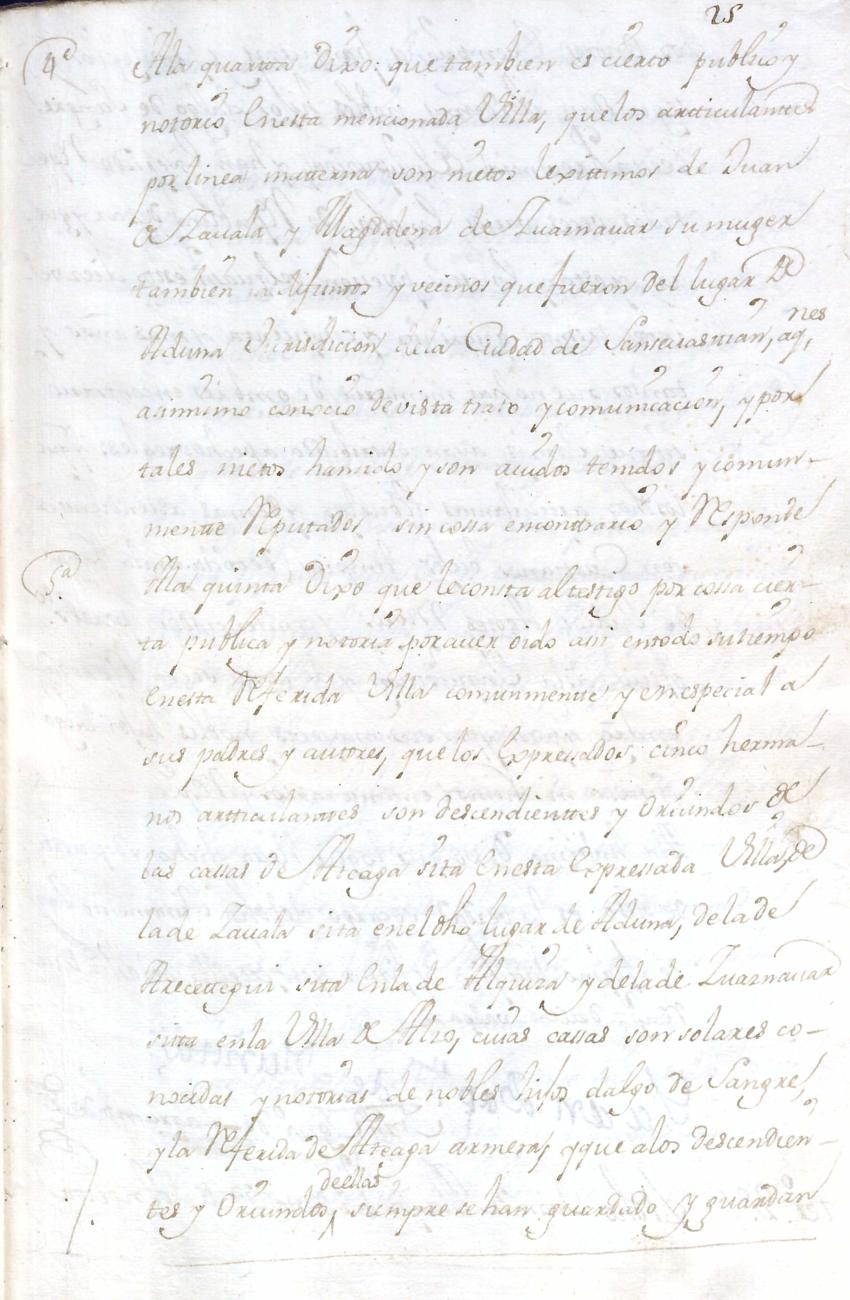 25
4ª Ala quartta Dixo: que tambien es cierto publico y
notorio Enesta mencionada Villa, que los artticulanttes
por linea matterna son nietos lexittimos de Juan
de Zavala y Magdalena de Zuaznavar su muger
tambien ia difuntos y vecinos que fueron del lugar de
Aduna Jurisdicion dela Ciudad de Sansevastian, aq,nes
asimismo conocio de vista trato y comunicacion, y por
tales nietos han sido y son avidos tenidos y comun-
mente Reputados sin cossa encontrario y Responde
5ª Ala quinta Dixo que le consta al testigo por cossa cier-
ta publica y notoria por aver oido asi entodo su tiempo
Enesta Referida Villa comunmente y en especial a
sus padres y autores, que los Expressados cinco herma-
nos artticulanttes son descendienttes y Oriundos de
las cassas de Atteaga sita Enesta Expressada Villa, de
la de Zavala sita enel dho lugar de Aduna, de la de
Arecettegui sita Enla de Alquiza y dela de Zuaznavar
sitta en la Villa de Alzo, cuias cassas son solares co-
nocidas y notorias de nobles hijos dalgo de Sangre,
y la Referida de Atteaga armera, y que a los descendien-
tes y Oriundos deellas siempre se han guardado y guardan